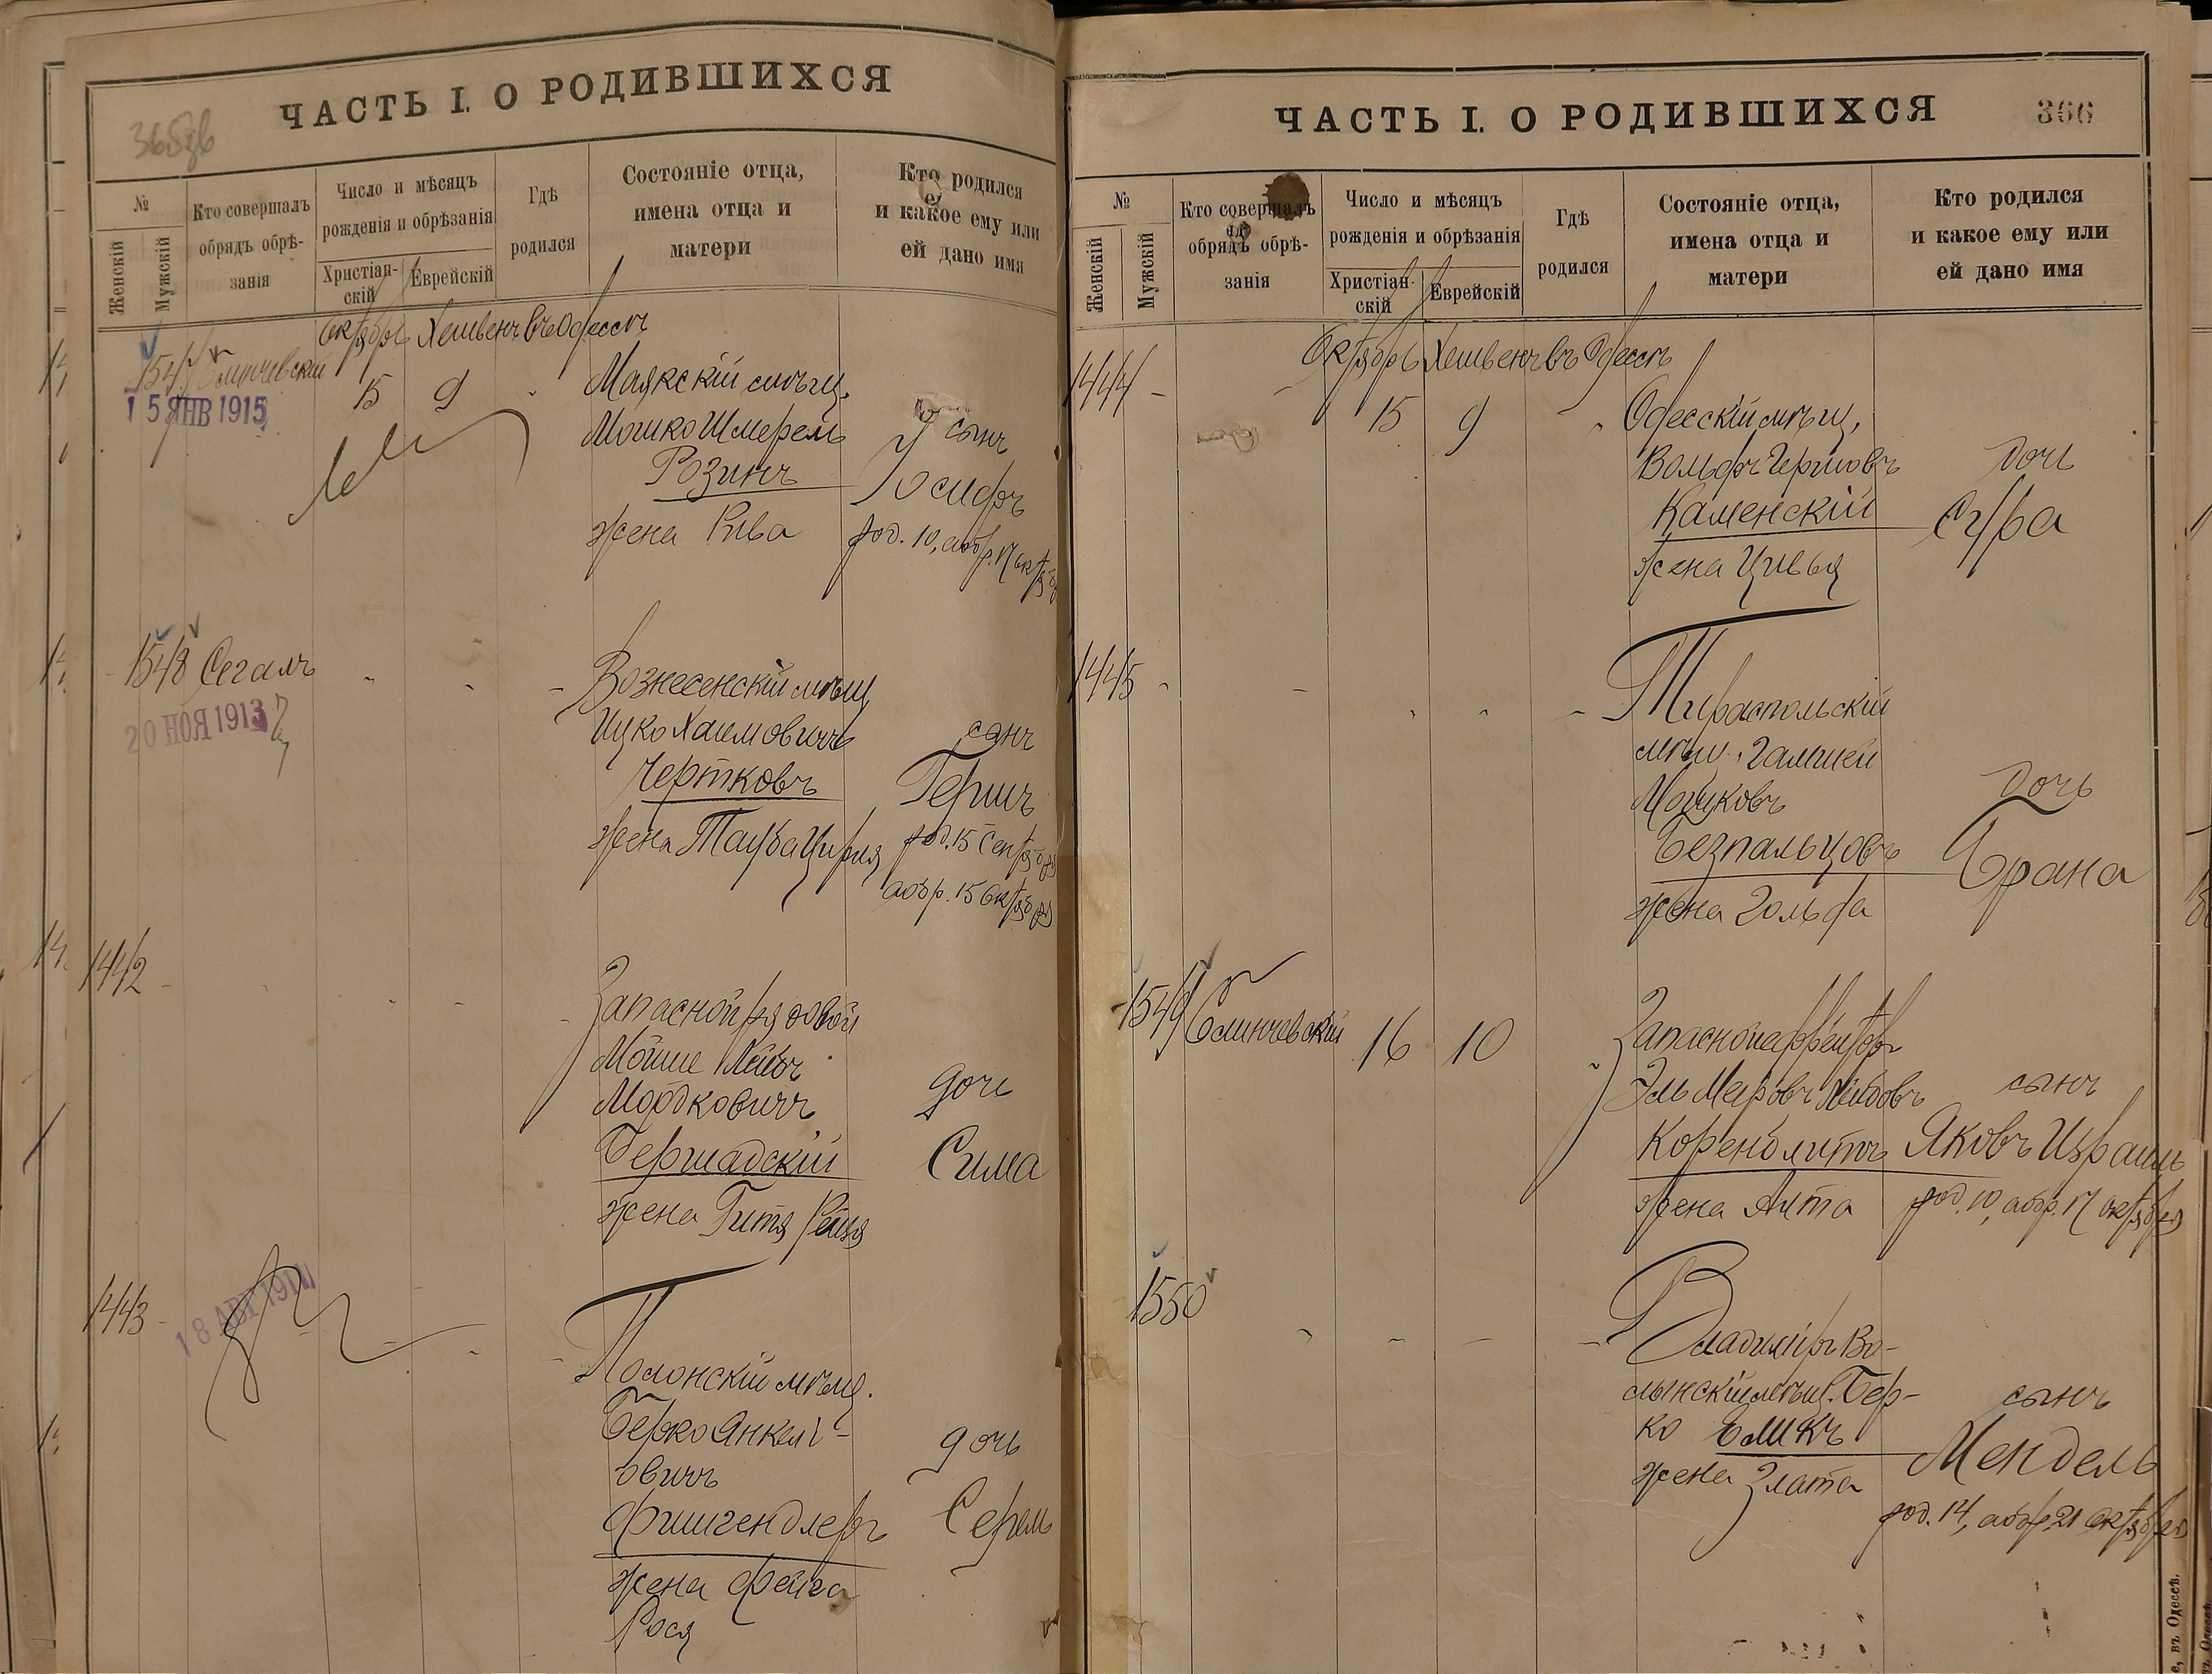 ЧАСТЬ I. О РОДИВШИХСЯ
№
Женскій
Мужскій
Кто совершалъ
обрядъ обрѣ-
занія
Число и мѣсяцъ
рожденія и обрѣзанія
Христіан-
скій
Еврейскій
Гдѣ
родился
Состояніе отца,
имена отца и
матери
Кто родился
и какое ему или
ей дано имя
Октябрь Хешвенъ въ Одессѣ
1547
15 ЯНВ 1915
15 9
Маякскій мѣщ.
Мошко Шмерель
Розинъ
жена Рива
сынъ
Іосифъ
род. 10, обр. 17 октя
1548 Сегалъ
20 НОЯ 1913
Вознесенскій мѣщ
Ицко Хаимовичъ
Чертковъ
жена Тауба Цирля
сынъ
Гершъ
род. 15 Сентября
обр. 15 Октября
1442
Запасной рядовой
Мойше Лейбъ
Мордковичъ
Бершадскій
жена Гитя Рейзя
дочь
Сима
1443
18 АВГ 1914
Полонскій мѣщ.
Берко Янкел-
овичъ
Фишгендлеръ
жена Фейга
Рося
дочь
ЧАСТЬ I. О РОДИВШИХСЯ
366
№
Женскій
Мужскій
Кто совершалъ
обрядъ обрѣ-
занія
Число и мѣсяцъ
рожденія и обрѣзанія
Христіан-
скій
Еврейскій
Гдѣ
родился
Состояніе отца,
имена отца и
матери
Кто родился
и какое ему или
ей дано имя
Октябрь Хешвенъ въ Одессѣ
1444
15 9
Одесскій мѣщ.
Вольфъ Гершовъ
Каменскій
жена Цивья
дочь
Сура
1445
Тираспольскій
мѣщ. Гамшей
Мошковъ
Безпальцовъ
жена Гольда
дочь
Брана
1549
16 10
Запасной ефрейторъ
Эль Меировъ Лейбовъ
Коренблитъ
жена Алта
сынъ
Яковъ Израиль
род. 10, обр. 17 октября
1550
Владиміръ Во-
лынскій мѣщ. Бер-
ко
жена Злата
сынъ
Мендель
род. 14, обр. 21 октября